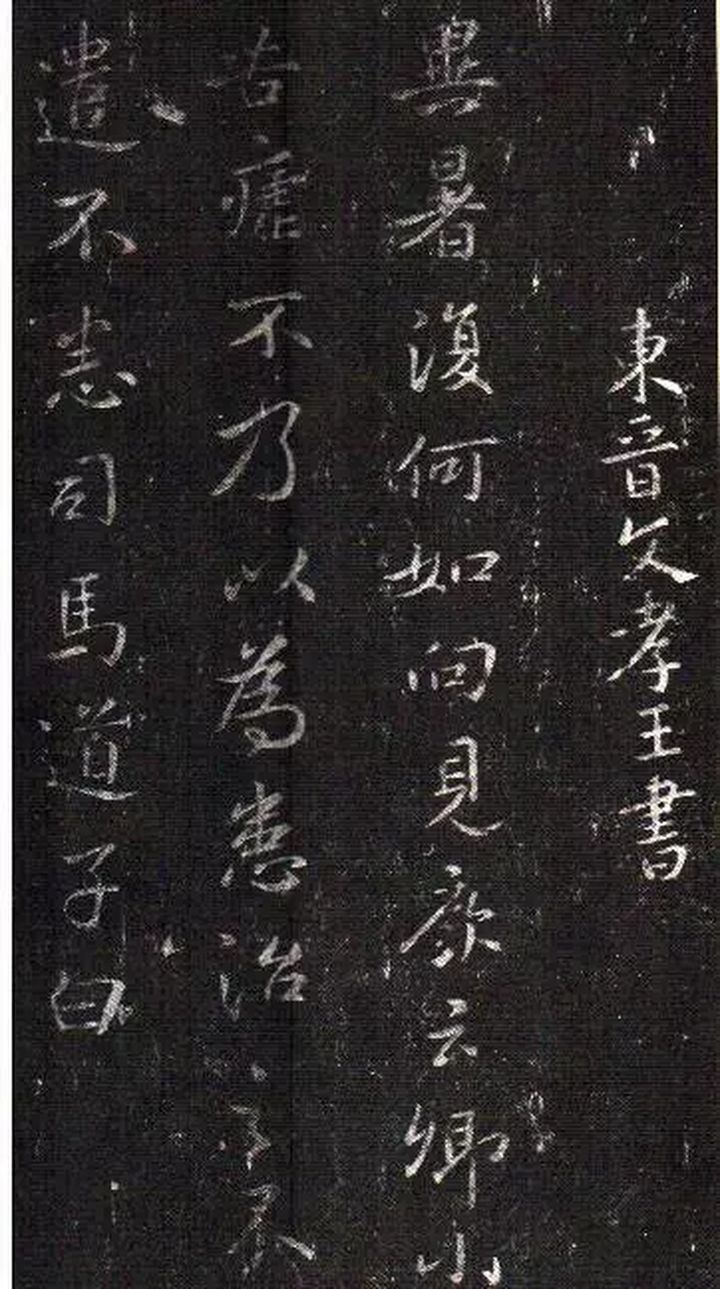 東晉文孝王書
異暑復何如向見廞云卿小
苦瘧不乃以為患治不
遣不悉司馬道子白